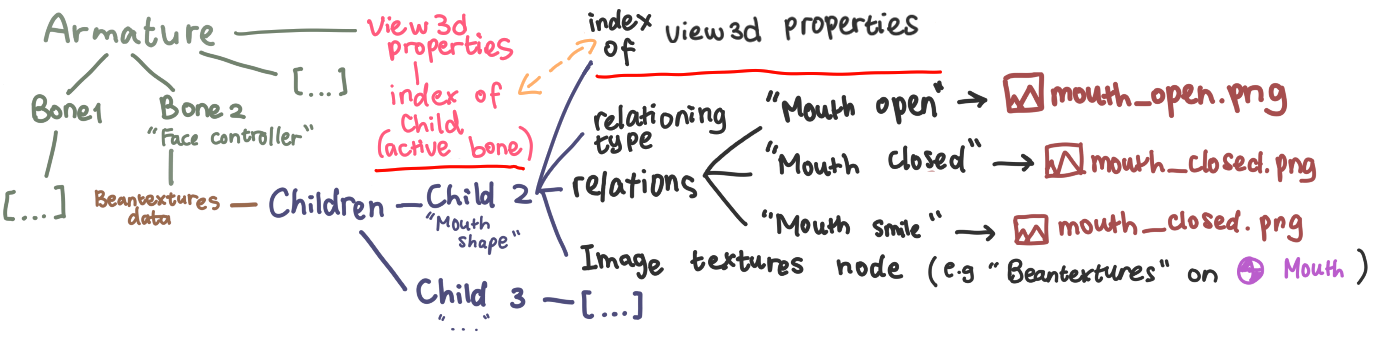 Armature
View3d
properties
index of
Child
(active bone)
index
of
view3d properties
[...]
Bone1
Bone 2
"Face controller"
[...]
Beantextures
data
Children
Child 2
"Mouth
shape"
Child 3
"..."
[...]
relationing
type
relations
"Mouth open" → mouth_open.png
"Mouth closed" → mouth_closed.png
"Mouth smile" → mouth_closed.png
Image textures node (e.g "Beantextures" on Mouth)